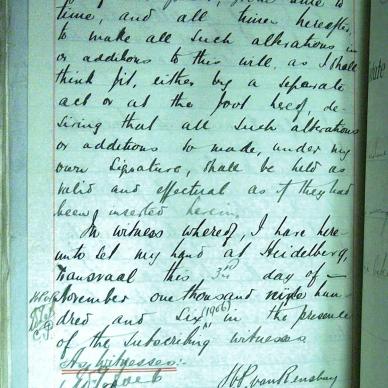 time, and all times hereafter,
to make all such alterations in
or additions to this will, as I shall
think fit, either by a separate
act or at the foot hereof, de-
siring that all such alterations
or additions so made, under my
own Signature, shall be held as
valid and effectual as if they had
been inserted herein.
In witness whereof, I have here-
unto set my hand at Heidelberg,
Transvaal this 3rd day of
November one thousand nine hun-
dred and Six (1906) in the presence
of the Subscribing witnesses
As Witnesses:
van Rensburg